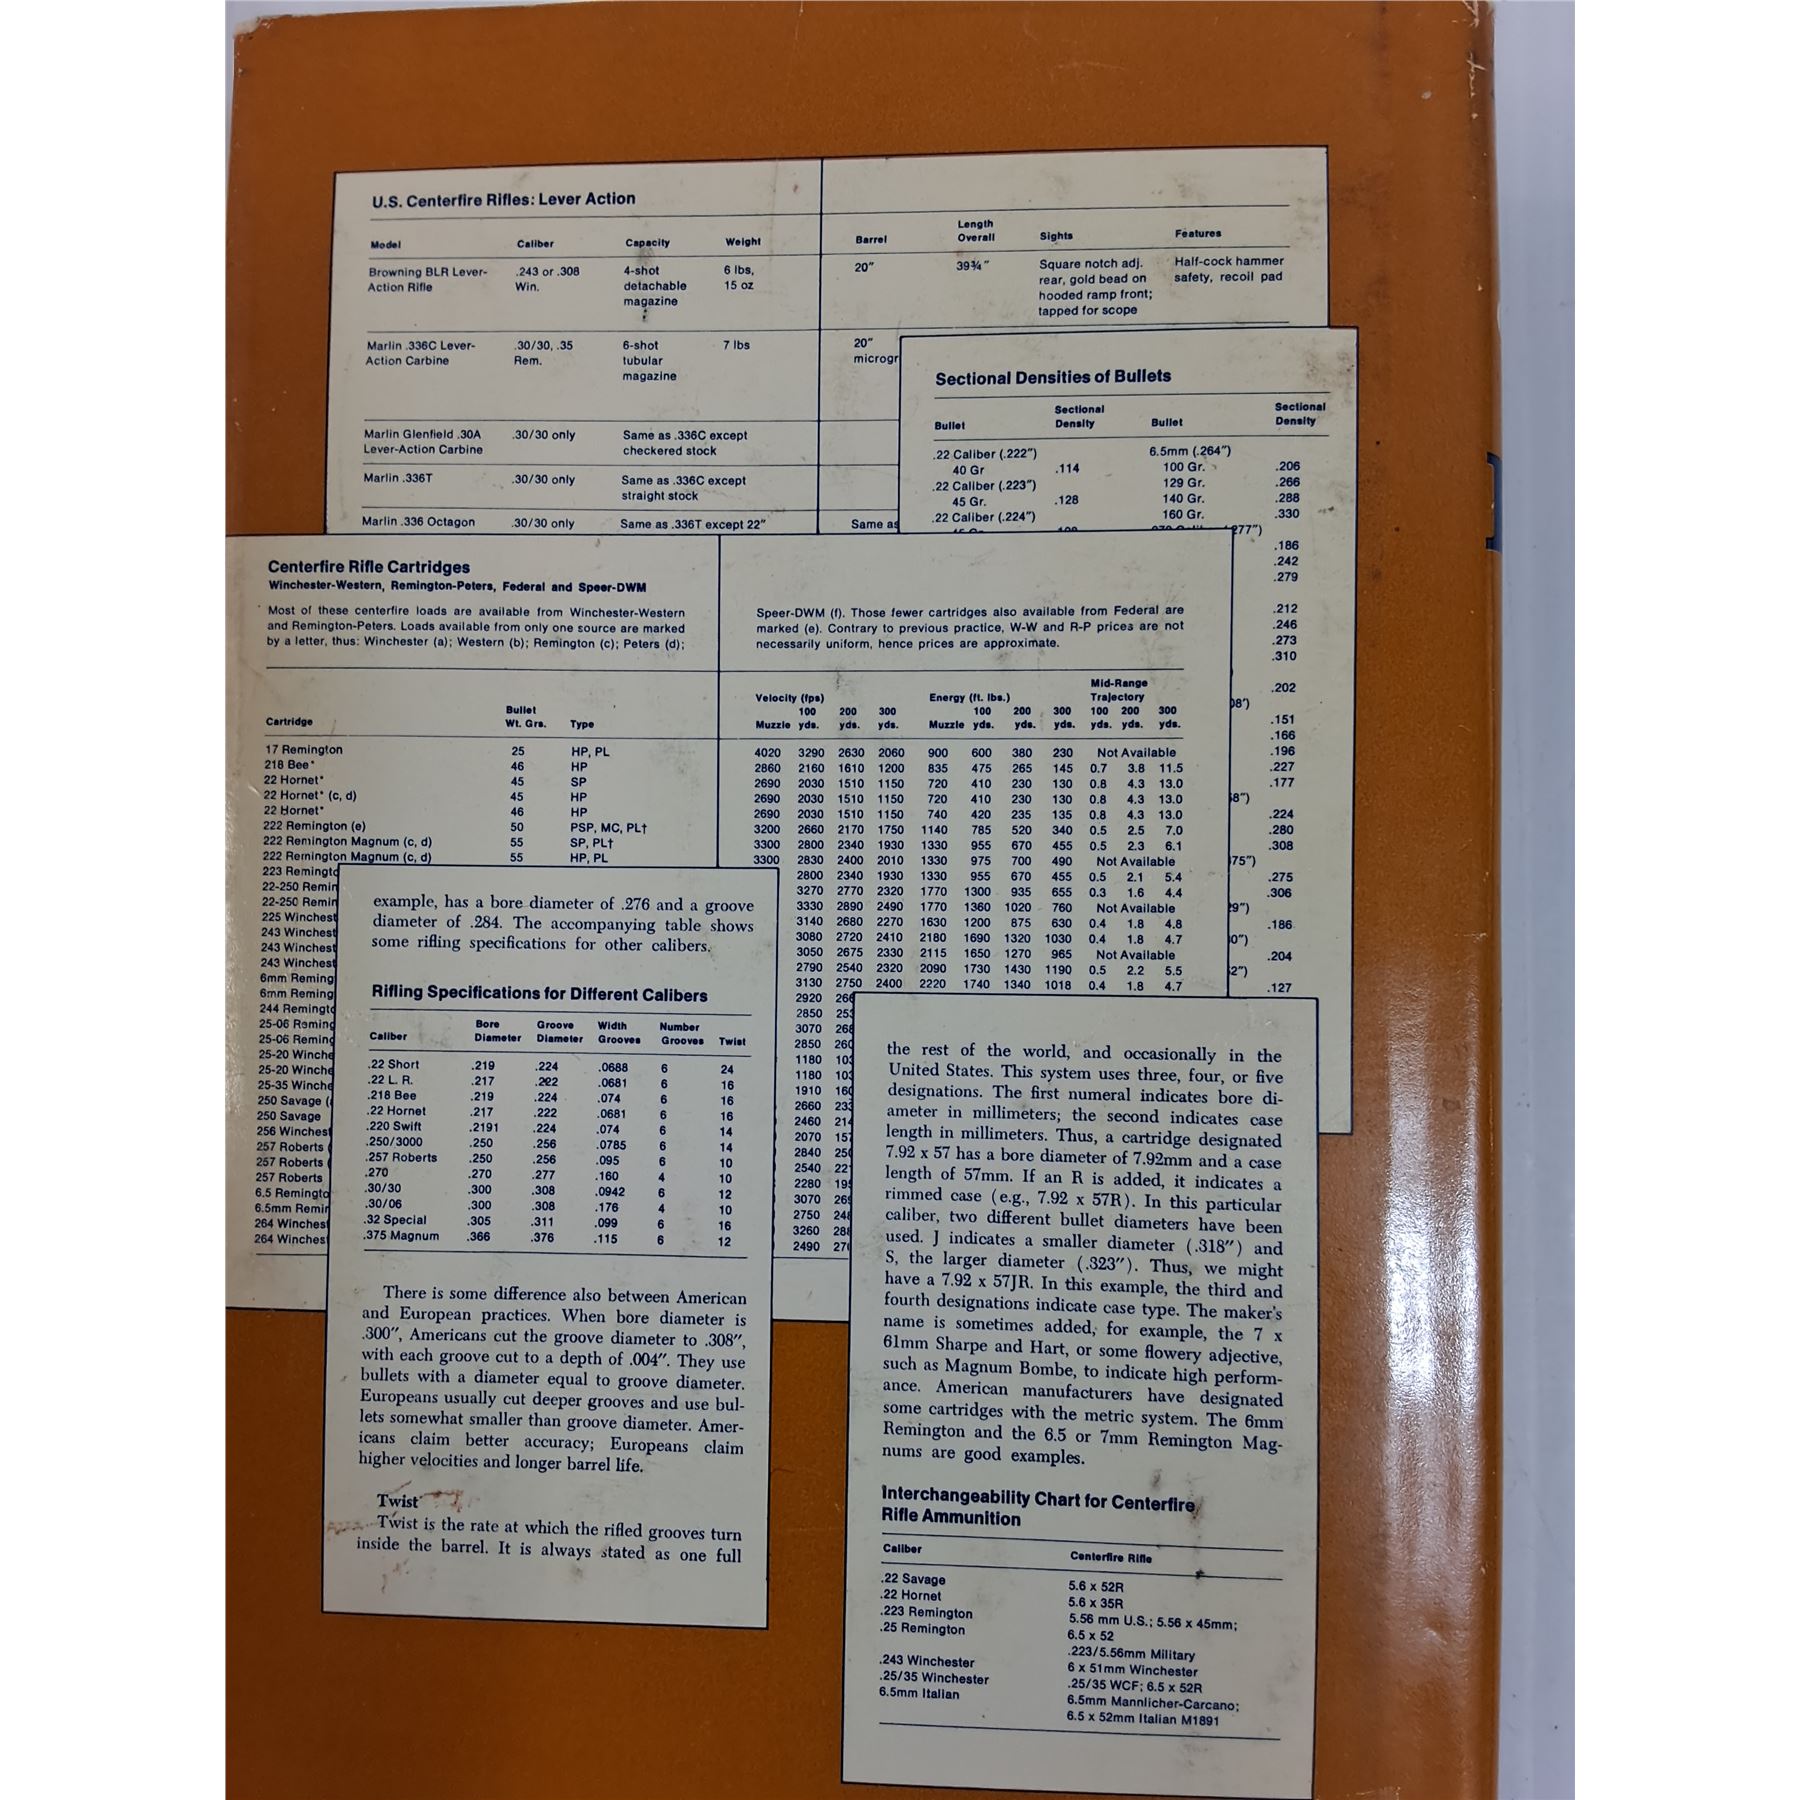 U.S. Centerfire Rifles: Lever Action
Model Caliber Capacity Weight Barrel Length Overall Sights Features
Browning BLR Lever- .243 or .308 4-shot 6 lbs, 20″ 39¾″ Square notch adj. Half-cock hammer
Action Rifle Win. detachable 15 oz rear, gold bead on safety, recoil pad
magazine hooded ramp front;
tapped for scope
Marlin .336C Lever- .30/30, .35 6-shot 7 lbs 20″
Action Carbine Rem. tubular microgr
magazine
Marlin Glenfield .30A .30/30 only Same as .336C except
Lever-Action Carbine checkered stock
Marlin .336T .30/30 only Same as .336C except
straight stock
Marlin .336 Octagon .30/30 only Same as .336T except 22″ Same as
Sectional Densities of Bullets
Bullet Sectional Density Bullet Sectional Density
.22 Caliber (.222″) 6.5mm (.264″)
40 Gr .114 100 Gr. .206
.22 Caliber (.223″) 129 Gr. .266
45 Gr. .128 140 Gr. .288
.22 Caliber (.224″) 160 Gr. .330
277″)
.186
.242
.279
.212
.246
.273
.310
.202
08″)
.151
.166
.196
.227
.177
8″)
.224
.280
.308
75″)
.275
.306
9″)
.186
0″)
.204
2″)
.127
Centerfire Rifle Cartridges
Winchester-Western, Remington-Peters, Federal and Speer-DWM
Most of these centerfire loads are available from Winchester-Western
and Remington-Peters. Loads available from only one source are marked
by a letter, thus: Winchester (a); Western (b); Remington (c); Peters (d);
Speer-DWM (f). Those fewer cartridges also available from Federal are
marked (e). Contrary to previous practice, W-W and R-P prices are not
necessarily uniform, hence prices are approximate.
Velocity (fps) Energy (ft. lbs.) Mid-Range Trajectory
Cartridge Bullet Wt. Grs. Type Muzzle 100 yds. 200 yds. 300 yds. Muzzle 100 yds. 200 yds. 300 yds. 100 yds. 200 yds. 300 yds.
17 Remington 25 HP, PL 4020 3290 2630 2060 900 600 380 230 Not Available
218 Bee* 46 HP 2860 2160 1610 1200 835 475 265 145 0.7 3.8 11.5
22 Hornet* 45 SP 2690 2030 1510 1150 720 410 230 130 0.8 4.3 13.0
22 Hornet* (c, d) 45 HP 2690 2030 1510 1150 720 410 230 130 0.8 4.3 13.0
22 Hornet* 46 HP 2690 2030 1510 1150 740 420 235 135 0.8 4.3 13.0
222 Remington (e) 50 PSP, MC, PL† 3200 2660 2170 1750 1140 785 520 340 0.5 2.5 7.0
222 Remington Magnum (c, d) 55 SP, PL† 3300 2800 2340 1930 1330 955 670 455 0.5 2.3 6.1
222 Remington Magnum (c, d) 55 HP, PL 3300 2830 2400 2010 1330 975 700 490 Not Available
223 Remingto 2800 2340 1930 1330 955 670 455 0.5 2.1 5.4
22-250 Remin 3270 2770 2320 1770 1300 935 655 0.3 1.6 4.4
22-250 Remin 3330 2890 2490 1770 1360 1020 760 Not Available
225 Winchest 3140 2680 2270 1630 1200 875 630 0.4 1.8 4.8
243 Winchest 3080 2720 2410 2180 1690 1320 1030 0.4 1.8 4.7
243 Winchest 3050 2675 2330 2115 1650 1270 965 Not Available
243 Winchest 2790 2540 2320 2090 1730 1430 1190 0.5 2.2 5.5
6mm Reming 3130 2750 2400 2220 1740 1340 1018 0.4 1.8 4.7
6mm Reming 2920 266
244 Remingto 2850 253
25-06 Reming 3070 268
25-06 Reming 2850 260
25-20 Winche 1180 103
25-20 Winche 1180 103
25-35 Winche 1910 160
250 Savage ( 2660 233
250 Savage 2460 214
256 Winches 2070 157
257 Roberts 2840 250
257 Roberts 2540 22
257 Roberts 2280 195
6.5 Remingto 3070 269
6.5mm Remin 2750 248
264 Winches 3260 288
264 Winches 2490 270
example, has a bore diameter of .276 and a groove
diameter of .284. The accompanying table shows
some rifling specifications for other calibers.
Rifling Specifications for Different Calibers
Caliber Bore Diameter Groove Diameter Width Grooves Number Grooves Twist
.22 Short .219 .224 .0688 6 24
.22 L. R. .217 .222 .0681 6 16
.218 Bee .219 .224 .074 6 16
.22 Hornet .217 .222 .0681 6 16
.220 Swift .2191 .224 .074 6 14
.250/3000 .250 .256 .0785 6 14
.257 Roberts .250 .256 .095 6 10
.270 .270 .277 .160 4 10
.30/30 .300 .308 .0942 6 12
.30/06 .300 .308 .176 4 10
.32 Special .305 .311 .099 6 16
.375 Magnum .366 .376 .115 6 12
There is some difference also between American
and European practices. When bore diameter is
.300″, Americans cut the groove diameter to .308″,
with each groove cut to a depth of .004″. They use
bullets with a diameter equal to groove diameter.
Europeans usually cut deeper grooves and use bul-
lets somewhat smaller than groove diameter. Amer-
icans claim better accuracy; Europeans claim
higher velocities and longer barrel life.
Twist
Twist is the rate at which the rifled grooves turn
inside the barrel. It is always stated as one full
the rest of the world, and occasionally in the
United States. This system uses three, four, or five
designations. The first numeral indicates bore di-
ameter in millimeters; the second indicates case
length in millimeters. Thus, a cartridge designated
7.92 x 57 has a bore diameter of 7.92mm and a case
length of 57mm. If an R is added, it indicates a
rimmed case (e.g., 7.92 x 57R). In this particular
caliber, two different bullet diameters have been
used. J indicates a smaller diameter (.318″) and
S, the larger diameter (.323″). Thus, we might
have a 7.92 x 57JR. In this example, the third and
fourth designations indicate case type. The maker's
name is sometimes added, for example, the 7 x
61mm Sharpe and Hart, or some flowery adjective,
such as Magnum Bombe, to indicate high perform-
ance. American manufacturers have designated
some cartridges with the metric system. The 6mm
Remington and the 6.5 or 7mm Remington Mag-
nums are good examples.
Interchangeability Chart for Centerfire
Rifle Ammunition
Caliber Centerfire Rifle
.22 Savage 5.6 x 52R
.22 Hornet 5.6 x 35R
.223 Remington 5.56 mm U.S.; 5.56 x 45mm;
.25 Remington 6.5 x 52
.223/5.56mm Military
.243 Winchester 6 x 51mm Winchester
.25/35 Winchester .25/35 WCF; 6.5 x 52R
6.5mm Italian 6.5mm Mannlicher-Carcano;
6.5 x 52mm Italian M1891